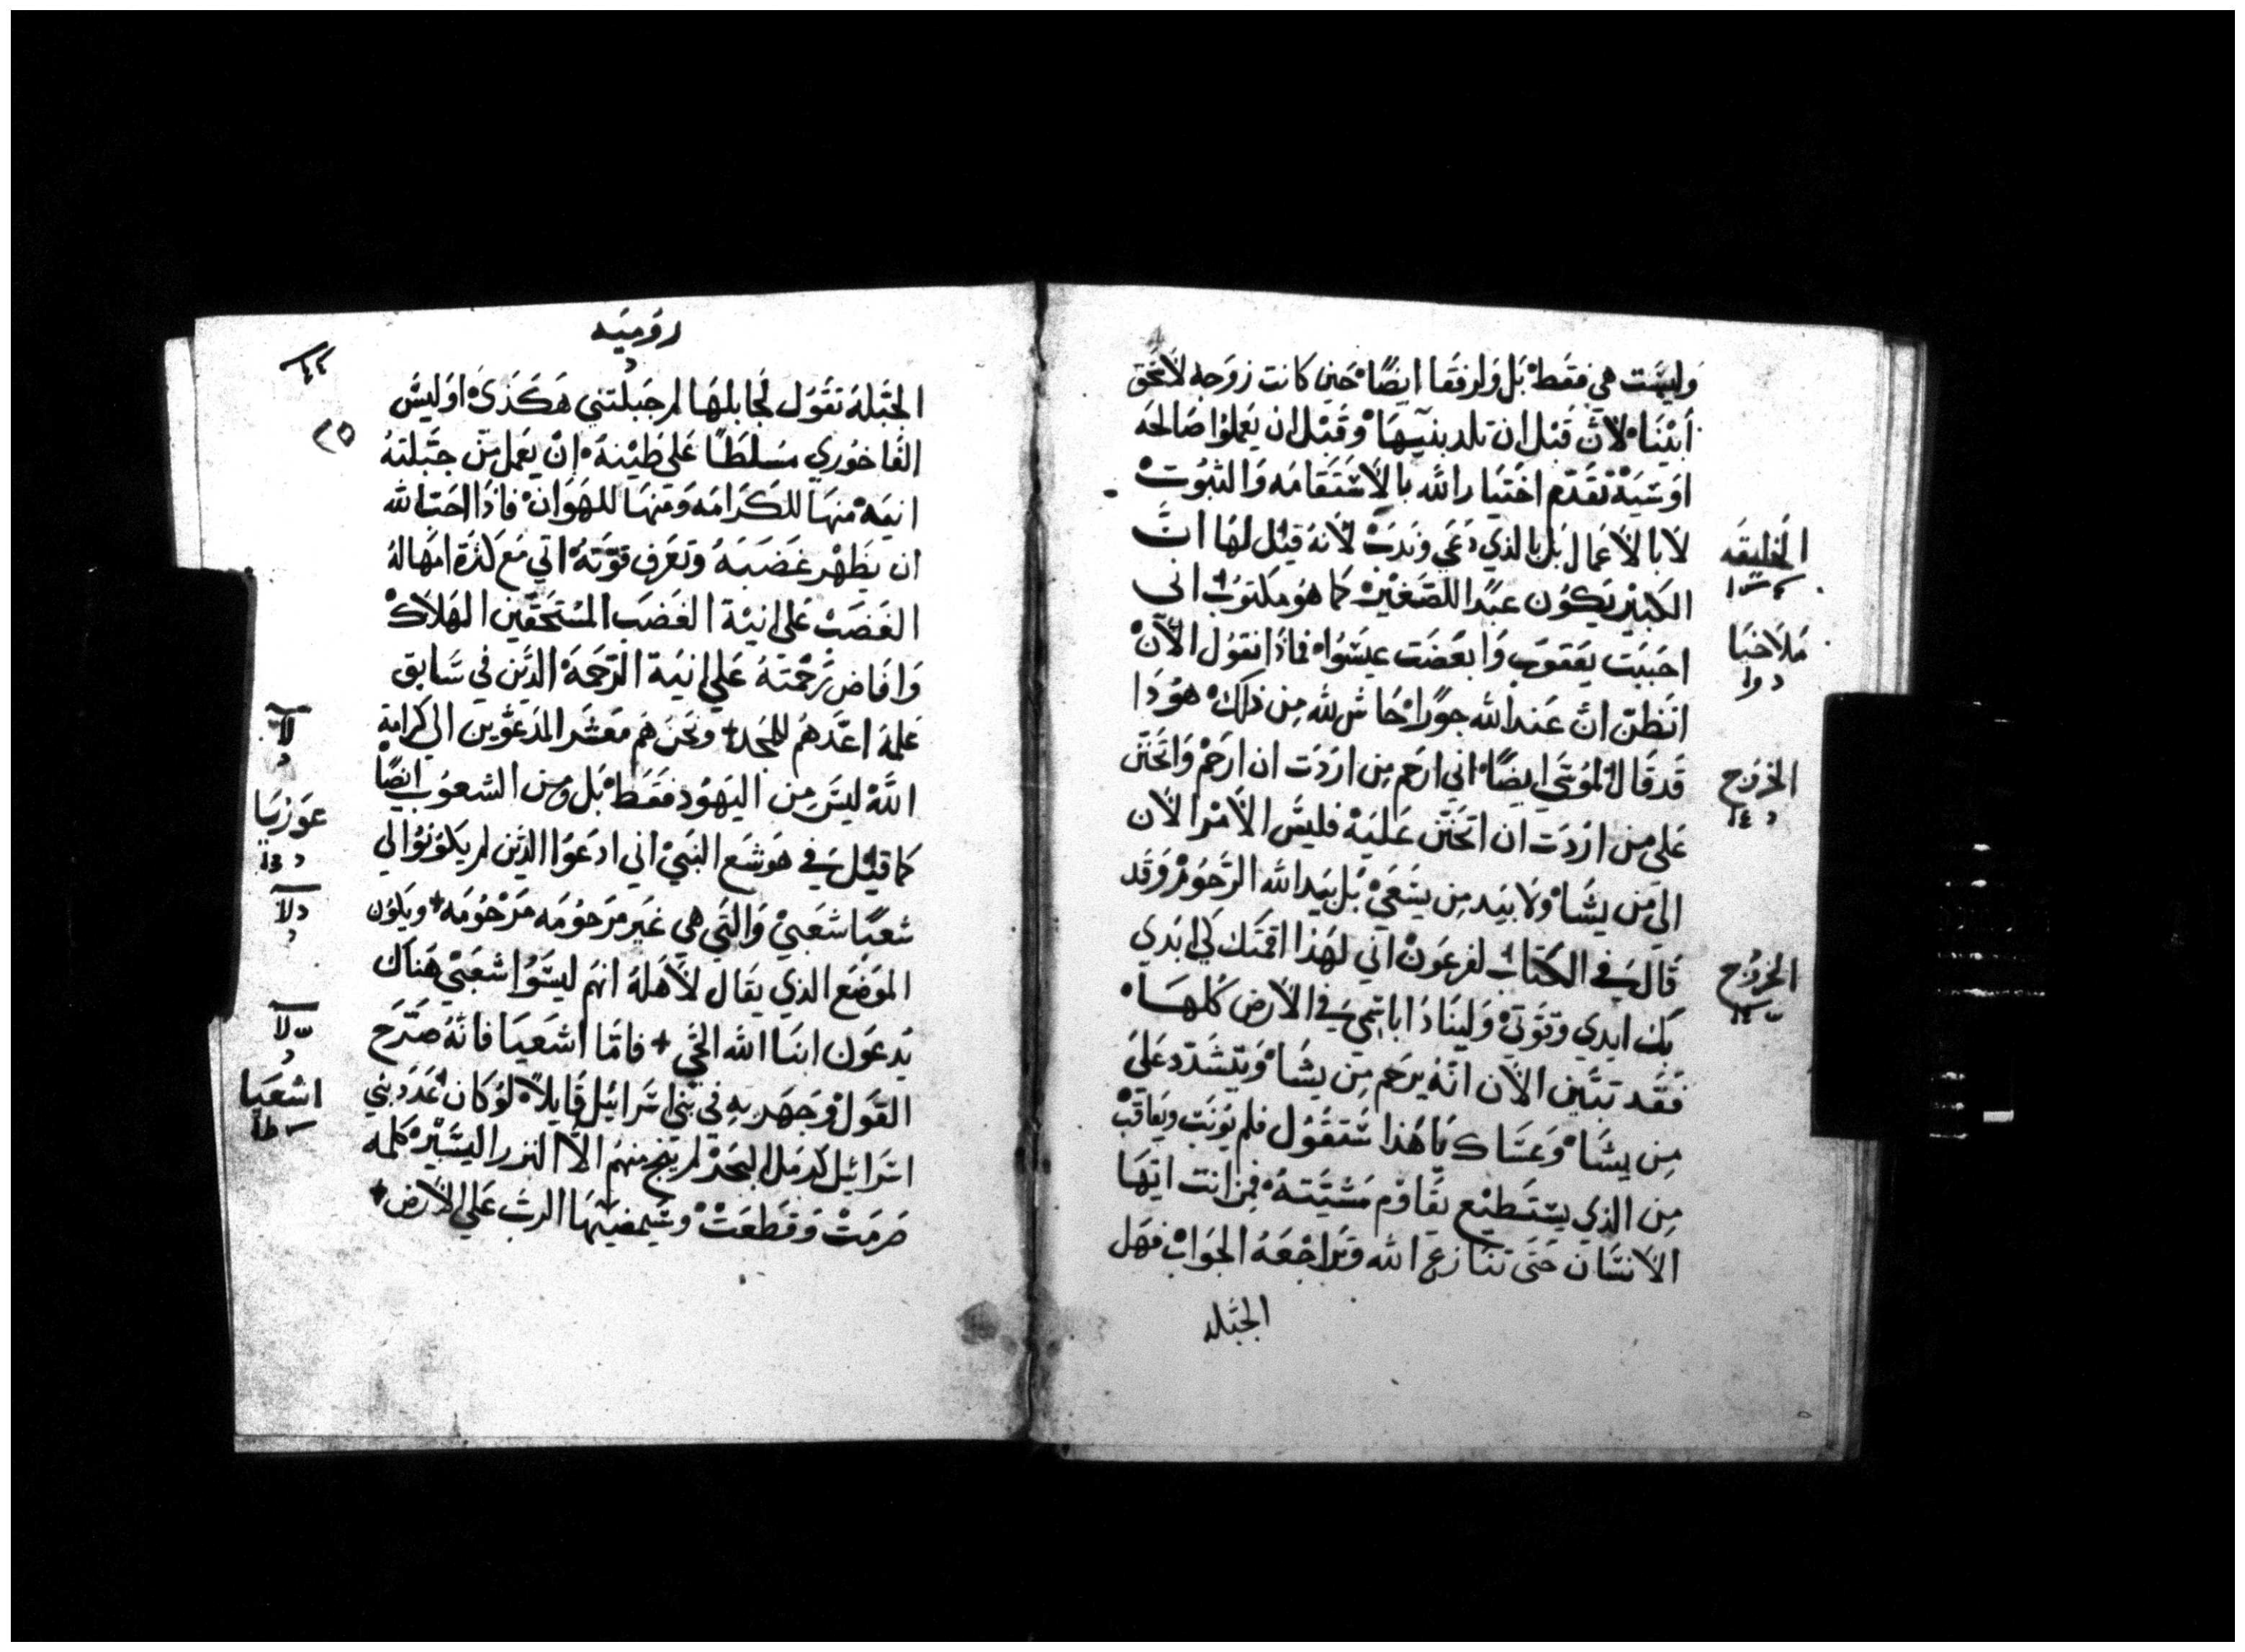 وليست هي فقط بل وارفقا ايضًا حين كانت زوجه لاسحق
ابينا لان قبل ان تلد بنيها وقبل ان يعملوا صالحه
او سيه تقدم اختيار الله بالاستقامه والثبوت
لا بالاعمال بل بالذي دعي وندب لانه قيل لها ان
الكبير يكون عبدا للصغير كما هو مكتوب اني
احببت يعقوب وابغضت عيسوا فماذا نقول الان
اتظن ان عند الله جورًا حاش لله من ذلك هوذا
قد قال لموسي ايضًا اني ارحم من اردت ان ارحم واتحنن
علي من اردت ان اتحنن عليه فليس الامر الان
الي من يشا ولا بيد من يسعي بل بيد الله الرحوم وقد
قال في الكتاب لفرعون اني لهذا اقمتك لكي ابدي
بك ايدي وقوتي ولينادا باسمي في الارض كلها
فقد تبين الان انه يرحم من يشا ويتشدد علي
من يشا وعساك يا هذا ستقول فلم يونب ويعاقب
من الذي يستطيع يقاوم مشيته فمن انت ايها
الانسان حتي تنازع الله وتراجعه الجواب فهل
الجبله
الخليقه
ملاخيا
الخروج
الخروج
روميه
الجبله تقول لجابلها لم جبلتني هكذي اوليس
الفاخوري مسلطًا علي طينه ان يعمل من جبلته
انيه منها للكرامه ومنها للهوان فاذا احب الله
ان يظهر غضبه وتعرف قوته اتي مع كثرة امهاله
الغضب علي انية الغضب المستحقين الهلاك
وافاض رحمته علي انية الرحمة الذين في سابق
علمه اعدهم للمجد ونحن هم معشر المدعوين الي كرامة
الله ليس من اليهود فقط بل ومن الشعوب ايضًا
كما قيل في هوشع النبي اني ادعوا الذين لم يكونوا لي
شعبًا شعبي والتي هي غير مرحومه مرحومه ويكون
الموضع الذي يقال لاهله انهم ليسوا شعبي هناك
يدعون ابنا الله الحي فاما اشعيا فانه صرح
القول وجهر به في بني اسرائيل قايلاً لو كان عدد بني
اسرائيل كرمل البحر لم ينج منهم الا النزر اليسير كلمه
صرمت وقطعت وسيمضيها الرب علي الارض
عوزيا
اشعيا